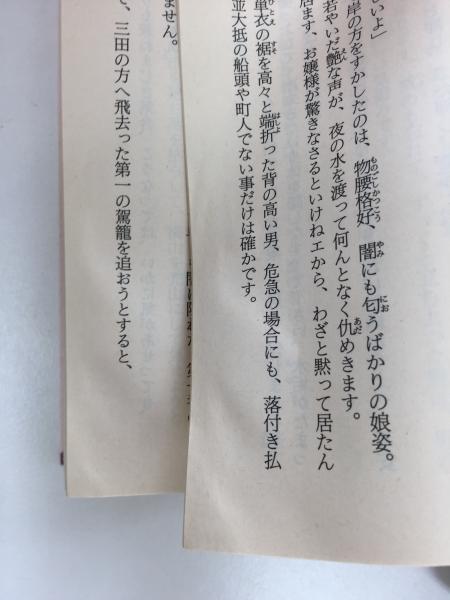 しいよ」
岸の方をすかしたのは、物腰格好、闇にも匂うばかりの娘姿。
若やいだ艶な声が、夜の水を渡って何んとなく仇めきます。
居ます、お嬢様が驚きなさるといけねエから、わざと黙って居たん
単衣の裾を高々と端折った背の高い男、危急の場合にも、落付き払
並大抵の船頭や町人でない事だけは確かです。
ません。
て、三田の方へ飛去った第一の駕籠を追おうとすると、